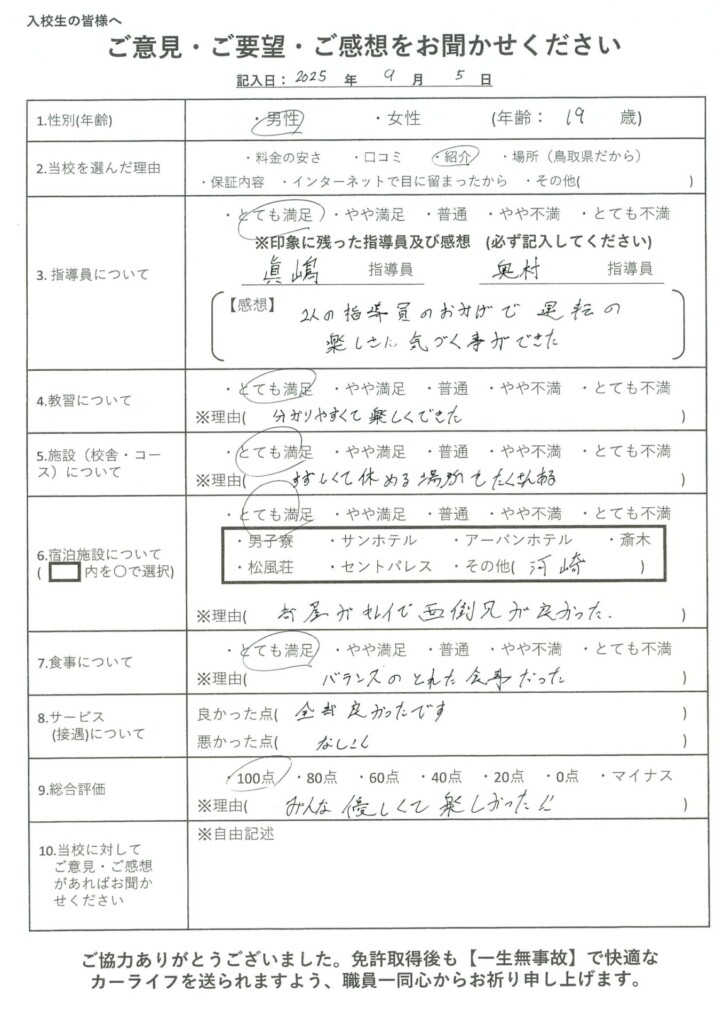 入校生の皆様へ
ご意見・ご要望・ご感想をお聞かせください
記入日： 2025 年 9 月 5 日
1.性別(年齢) ・男性 ・女性 (年齢： 19 歳)
2.当校を選んだ理由 ・料金の安さ ・口コミ ・紹介 ・場所（鳥取県だから）
・保証内容 ・インターネットで目に留まったから ・その他( )
3. 指導員について ・とても満足 ・やや満足 ・普通 ・やや不満 ・とても不満
※印象に残った指導員及び感想 (必ず記入してください)
眞嶋 指導員 奥村 指導員
【感想】 2人の指導員のおかげで 運転の
楽しさに 気づく事ができた
4.教習について ・とても満足 ・やや満足 ・普通 ・やや不満 ・とても不満
※理由( 分かりやすくて楽しくできた )
5.施設（校舎・コース）について ・とても満足 ・やや満足 ・普通 ・やや不満 ・とても不満
※理由( すずしくて休める場所もたくさんある )
6.宿泊施設について ・とても満足 ・やや満足 ・普通 ・やや不満 ・とても不満
( 内を○で選択) ・男子寮 ・サンホテル ・アーバンホテル ・斎木
・松風荘 ・セントパレス ・その他( 河崎 )
※理由( 部屋がキレイで が良かった. )
7.食事について ・とても満足 ・やや満足 ・普通 ・やや不満 ・とても不満
※理由( バランスのとれた食事だった )
8.サービス 良かった点( 全部良かったです )
(接遇)について 悪かった点( なし )
9.総合評価 ・100点 ・80点 ・60点 ・40点 ・20点 ・0点 ・マイナス
※理由( みんな優しくて楽しかった!! )
10.当校に対して ※自由記述
ご意見・ご感想
があればお聞か
せください
ご協力ありがとうございました。免許取得後も【一生無事故】で快適な
カーライフを送られますよう、職員一同心からお祈り申し上げます。